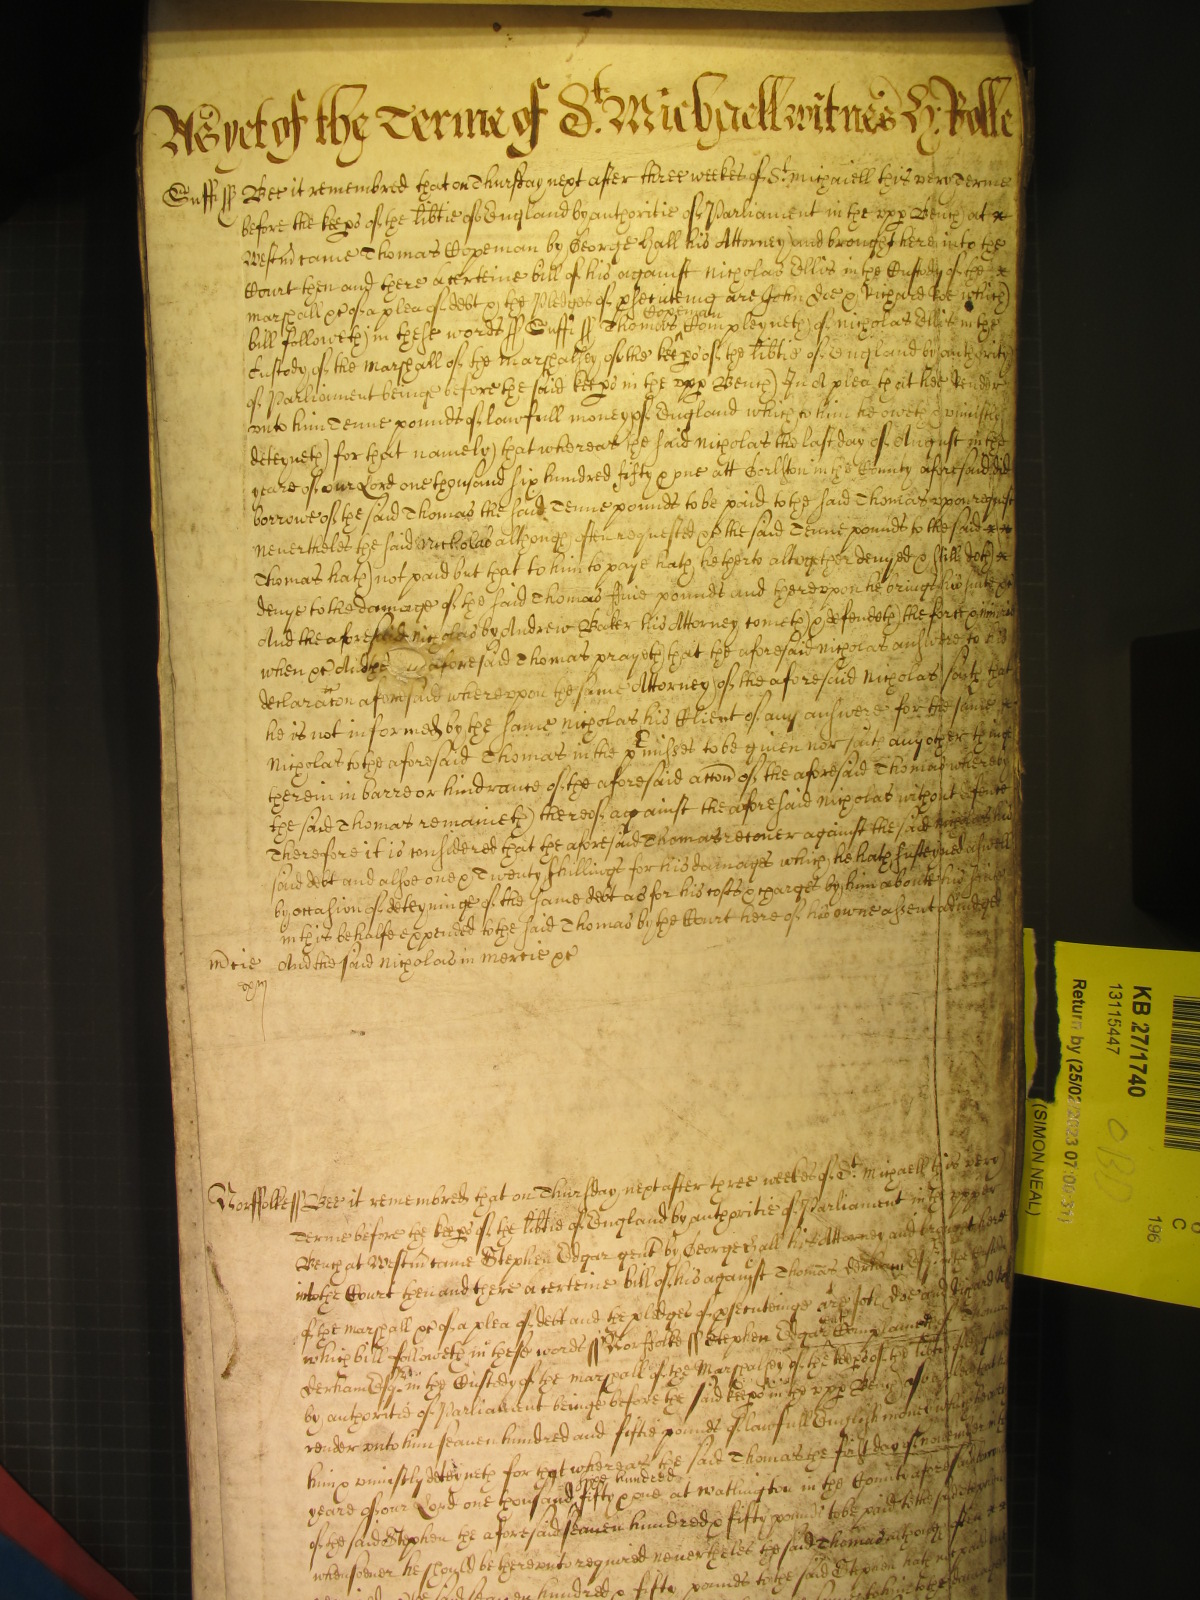 As yet of the Terme of St. Michaell witnes H. Rolle
Suff ss Bee it remembred that on Thursday next after three weekes of St. Michaell this very Terme
before the keeps of the libtie of England by authoritie of Parliament in the vpp Bench at
Westm came Thomas Copeman by George Hall his Attorney and brought here into the
Court then and there a certeine bill of his against Nicholas Ellis in the Custody of the
marshall &c of a plea of debt & the Pledges of psecuteing are John Doe & Richard Roe which
Copeman
bill followeth in these words ss Suff ss Thomas Compleyneth of Nicholas Ellis in the
Custody of the marshall of the Marshalsey of the keeps of the libtie of England by authority
of Parliament beinge before the said keeps in the vpp Bench Of A plea that hee render
vnto him Tenne pounds of lawfull money of England which to him he oweth & vniustly
deteyneth for that namely that whereas the said Nicholas the last day of August in the
yeare of our Lord one thousand six hundred fifty & one att Gorlston in the County aforesaid did
borrowe of the said Thomas the said Tenne pounds to be paid to the said Thomas vpon request
nevertheles the said Nicholas although often requested &c the said Tenne pounds to the said
Thomas hath not paid but that to him to paye hath hetherto altogether denyed & still doth
denye to the damage of the said Thomas Five pounds and therevpon he bringeth his suite &c
And the aforesaid Nicholas by Andrew Baker his Attorney cometh & defendeth the force & iniurie
when &c And the aforesaid Thomas prayeth that the aforesaid Nicholas answere to his
declaracon aforesaid wherevpon the same Attorney of the aforesaid Nicholas saith that
he is not informed by the same Nicholas his Client of any answere for the same
Nicholas to the aforesaid Thomas in the pmisses to be given nor saith any other thinge
therein in barre or hindrance of the aforesaid accon of the aforesaid Thomas whereby
the said Thomas remaineth thereof against the aforesaid Nicholas without defence
Therefore it is considered that the aforesaid Thomas recover against the said Nicholas his
said debt and alsoe one & Twenty shillings for his damages which he hath susteyned aswell
by occasion of deteyninge of the same debt as for his costs & charges by him aboute his suite
in this behalfe expended to the said Thomas by the Court here of his owne assent adiudged
mcie And the said Nicholas in mercie &c
Norffolke ss Bee it remembred that on Thursday next after three weekes of St. Michaell this very
Terme before the keeps of the libtie of England by authoritie of Parliament in the vpper
Bench at Westm came Stephen Edgar gent by George Hall his Attorney and brought here
into the Court then and there a certeine bill of his against Thomas Derham Esqr in the Custody
of the marshall &c of a plea of debt and the pledges of psecuteinge are John Doe and Richard Roe
which bill followeth in these words ss Norffolke ss Stephen Edgar gent Complaineth of Thomas
Derham Esqr in the Custody of the marshall of the Marshalsey of the keeps of the libtie of England
by authoritie of Parliament beinge before the said keeps in the vpp Bench of a plea that he
render vnto him seaven hundred and fiftie pounds of lawfull English money which he oweth
him & vniustly deteyneth for that whereas the said Thomas the first day of November in the
sixe hundred
yeare of our Lord one thousand fifty & one at Watlington in the County aforesaid borrowed
of the said Stephen the aforesaid seaven hundred & fifty pounds to be paid to the said Stephen
whensoever he should be therevnto required nevertheles the said Thomas although often
the said seaven hundred & fifty pounds to the said Stephen hath not paid but
KB 27/1740
13115447
Return by (25/02/2023 07:00:37)
(SIMON NEAL)
OBD
196
C